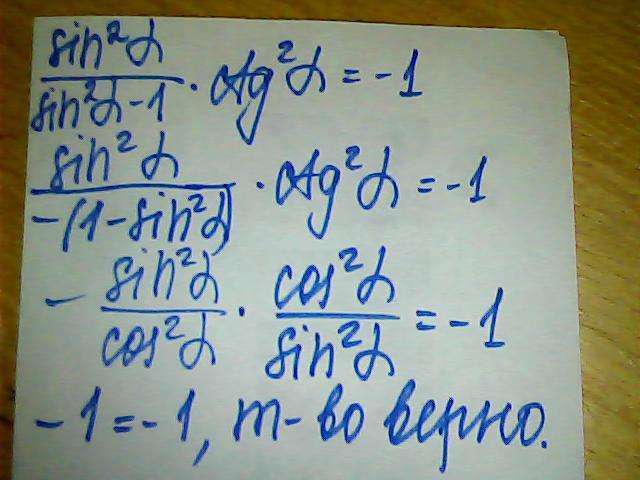 sin²α / sin²α-1 · ctg²α = -1
sin²α / -(1-sin²α) · ctg²α = -1
- sin²α / cos²α · cos²α / sin²α = -1
-1 = -1, т-во верно.